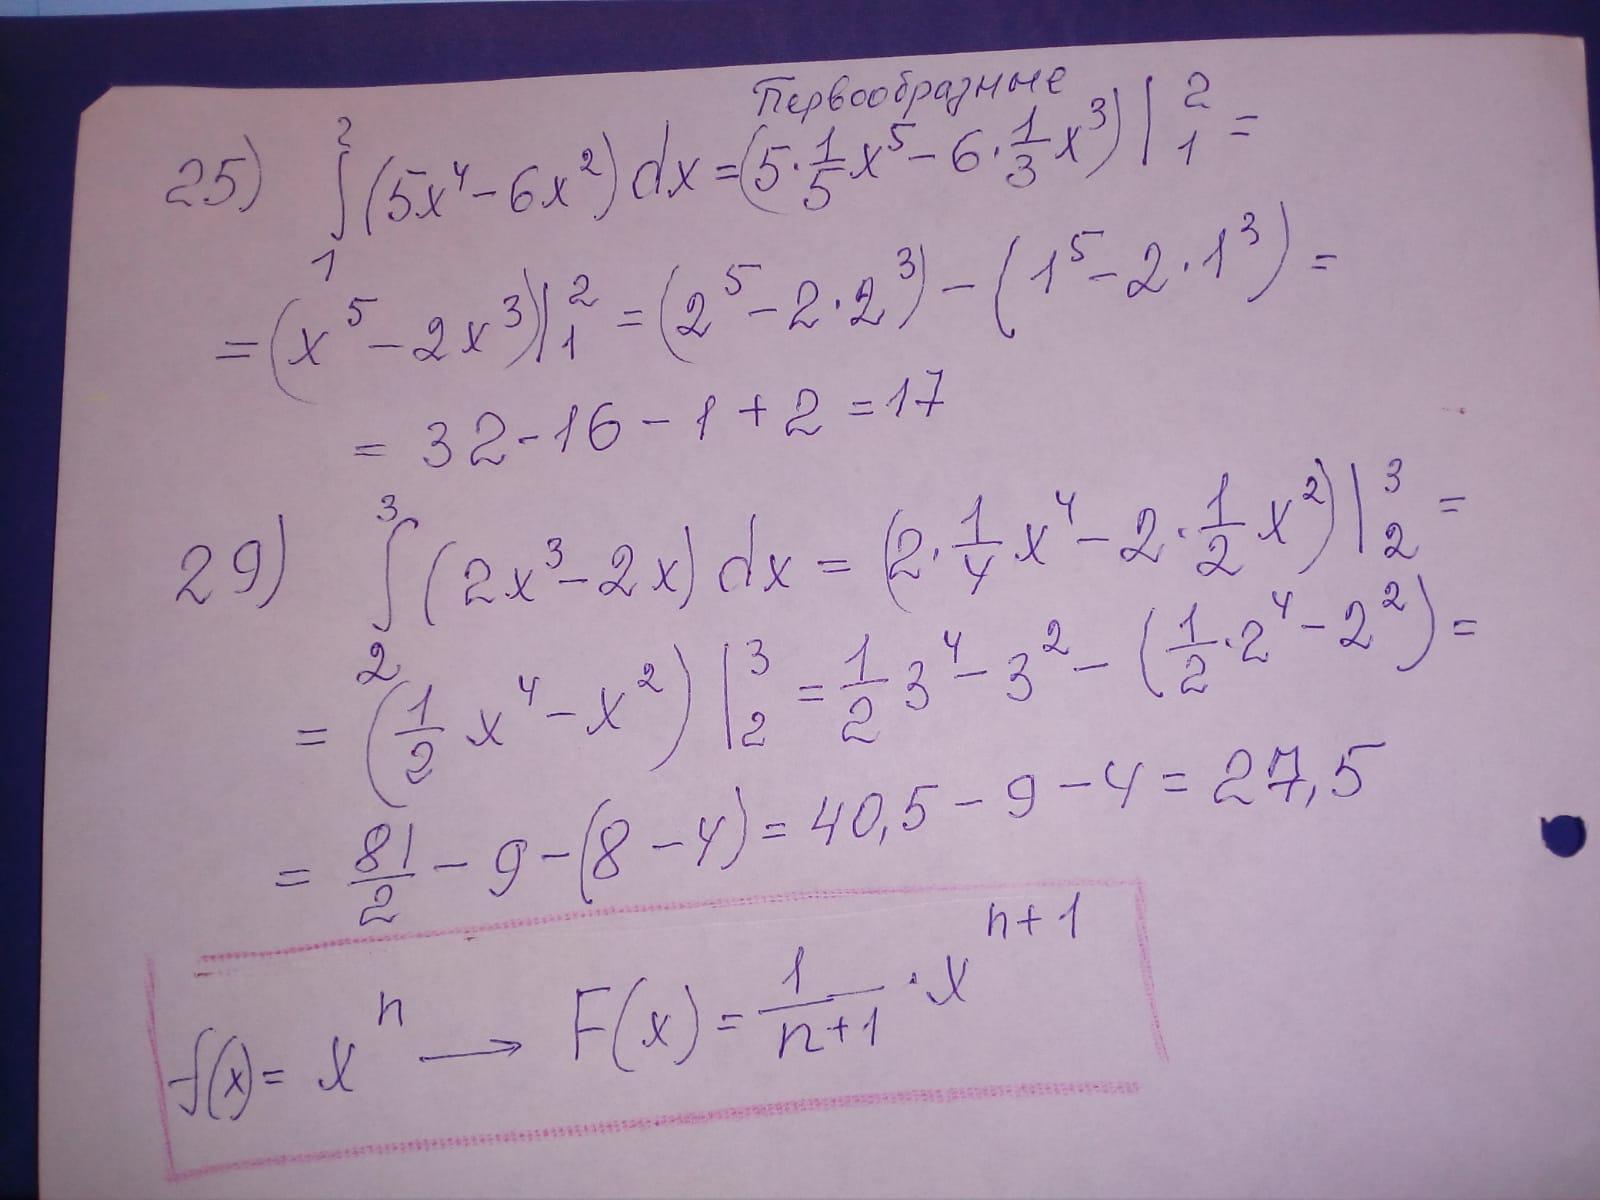 Первообразные
25) ∫₁² (5x⁴ - 6x²) dx = (5 · 1/5 x⁵ - 6 · 1/3 x³) |₁² =
= (x⁵ - 2x³) |₁² = (2⁵ - 2 · 2³) - (1⁵ - 2 · 1³) =
= 32 - 16 - 1 + 2 = 17
29) ∫₂³ (2x³ - 2x) dx = (2 · 1/4 x⁴ - 2 · 1/2 x²) |₂³ =
= (1/2 x⁴ - x²) |₂³ = 1/2 3⁴ - 3² - (1/2 · 2⁴ - 2²) =
= 81/2 - 9 - (8 - 4) = 40,5 - 9 - 4 = 27,5
f(x) = xⁿ → F(x) = 1/(n+1) · xⁿ⁺¹